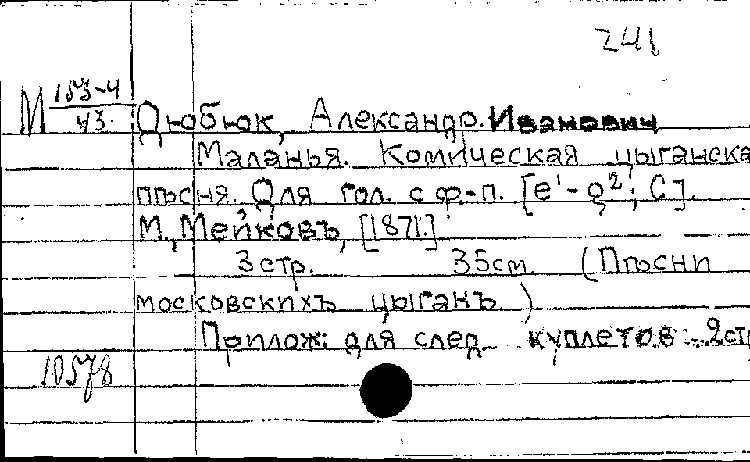 241
М 153-4/43. Дюбюк, Александр. Иванович
Маланья. Комическая цыганска
пѣсня. Для гол. с ф-п. [e¹-g²; C].
М., Мейковъ, [1871.]
3 стр. 35 см. (Пѣсни
московскихъ цыганъ.)
Прилож: для след. куплетов: 2 стр
10578